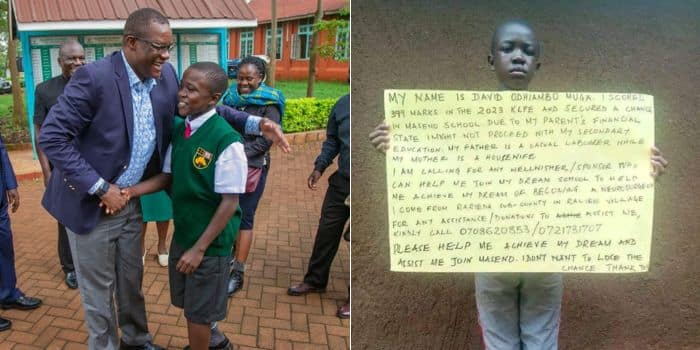 MY NAME IS DAVID ODHIAMBO MUGA. I SCORED
399 MARKS IN THE 2023 KCPE AND SECURED A CHANCE
IN MASENO SCHOOL DUE TO MY PARENT'S FINANCIAL
STATE I MIGHT NOT PROCEED WITH MY SECONDARY
EDUCATION. MY FATHER IS A CASUAL LABOURER WHILE
MY MOTHER IS A HOUSEWIFE.
I AM CALLING FOR ANY WELLWISHER/SPONSOR WHO
CAN HELP ME JOIN MY DREAM SCHOOL TO HELP
ME ACHIEVE MY DREAM OF BECOMING A NEUROSURGEON
I COME FROM RARIEDA SUB-COUNTY IN RALIEW VILLAGE
FOR ANY ASSISTANCE/DONATIONS TO ASSIST ME,
KINDLY CALL 0708620853/0721731707
PLEASE HELP ME ACHIEVE MY DREAM AND
ASSIST ME JOIN MASENO. I DONT WANT TO LOSE THE
CHANCE THANK